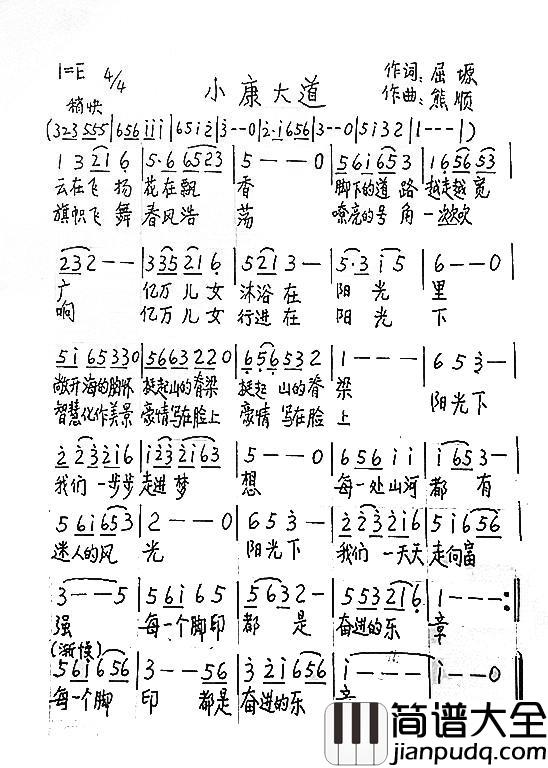 1=E 4/4
小康大道
作词:屈塬
作曲:熊顺
稍快
(323 555|656 i i i|65 i 2̇|3̇--0|2̇·i 656|3--0|5 i 3 2|1---|)
1 3 21 6|5·6 6523|5--0|56i 653|1656 53|
云在飞扬 花在飘 香 脚下的道路 越走越宽
旗帜飞舞 春风浩 荡 嘹亮的号角 一次次吹
232--|335 216|5213-|5·3 i 5|6--0|
广 亿万儿女 沐浴在 阳光 里
响 亿万儿女 行进在 阳光 下
5i65330|5663220|6565332|1---|653-|
敞开海的胸怀 挺起山的脊梁 挺起山的脊 梁 阳光下
智慧化作美景 豪情写在脸上 豪情写在脸 上
2̇ 2̇3̇ 2̇i6|i2̇3̇ 2̇i63|5--0|656 i i|i653-|
我们一步步 走进梦 想 每一处山河 都有
56i653|2--0|653-|2̇2̇3̇2̇i6|5i656|
迷人的风 光 阳光下 我们一天天 走向富
3--5|56i65|5632-|553216|1---:‖
强 每一个脚印 都是 奋进的乐 章
(渐慢)
56i656|3--56|3̇2̇i656|i---|i--0‖
每一个脚 印 都是 奋进的乐 章
简谱大全
jianpudq.com